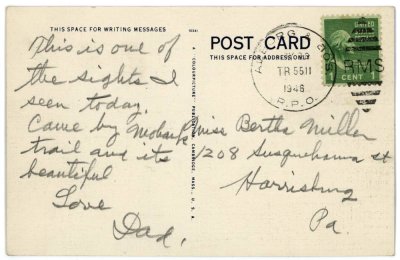 THIS SPACE FOR WRITING MESSAGES
POST CARD
THIS SPACE FOR ADDRESS ONLY
This is one of
the sights I
seen today.
Came by Mohawk
trail and its
beautiful
Love
Dad.
Miss Bertha Miller
1208 Susquehanna st
Harrisburg
Pa.
TR 5511
1946
R.P.O.
RMS
UNITED
1 CENT 1
A COLOURPICTURE PUBLICATION CAMBRIDGE, MASS., U.S.A.